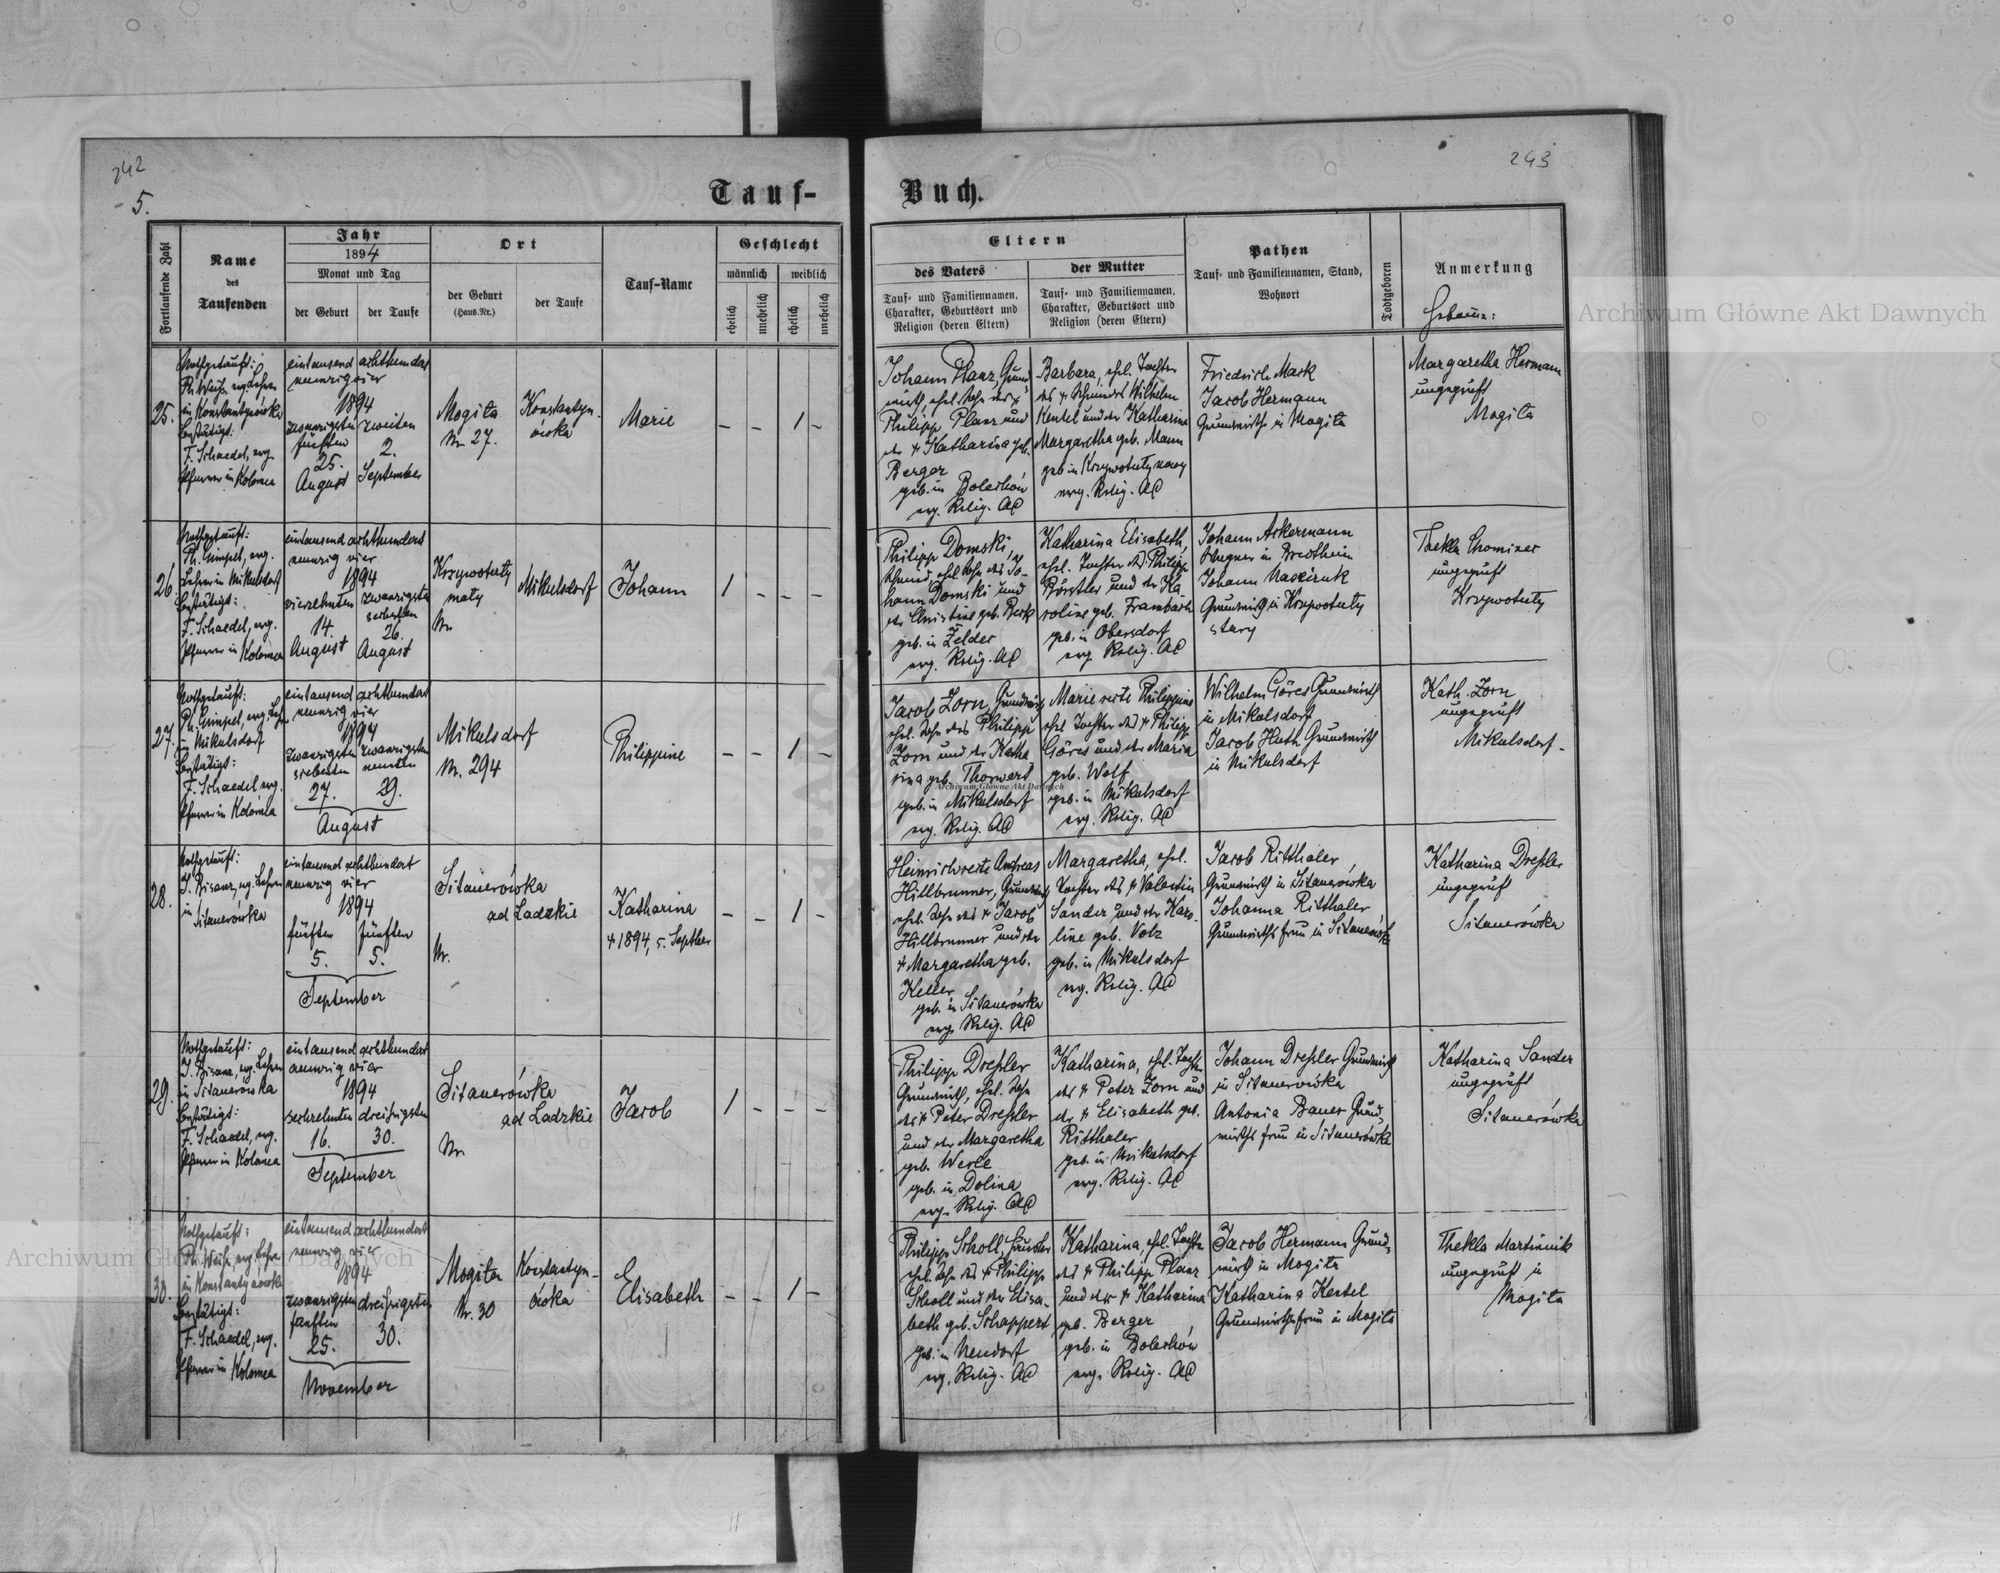 242
5.
Tauf-
Fortlaufende Zahl
Name
des
Taufenden
Jahr
1894
Monat und Tag
der Geburt
der Taufe
Ort
der Geburt
(Haus-Nr.)
der Taufe
Tauf-Name
Geschlecht
männlich
weiblich
ehelich
unehelich
ehelich
unehelich
25.
Nothgetauft:
Ph. Weiß, evg. Lehrer
in Konstantynówka
Bestätigt:
F. Schaedel, evg.
Pfarrer in Kolomea
eintausend achthundert
neunzig vier
1894
zwanzigsten
fünften
25.
August
zweiten
2.
September
Mogiła
Nr. 27.
Konstantyn-
ówka
Marie
– – 1 –
26.
Nothgetauft:
Ph. Gimpel, evg.
Lehrer in Mikulsdorf
Bestätigt:
F. Schaedel, evg.
Pfarrer in Kolomea
eintausend achthundert
neunzig vier
1894
vierzehnten
14.
August
zwanzigsten
sechsten
26.
August
Krzywotuły
mały
Nr.
Mikulsdorf
Johann
1 – – –
27.
Nothgetauft:
Ph. Gimpel, evg. Leh.
Mikulsdorf
Bestätigt:
F. Schaedel evg.
Pfarrer in Kolomea
eintausend achthundert
neunzig vier
1894
zwanzigsten
siebenten
27.
zwanzigsten
neunten
29.
August
Mikulsdorf
Nr. 294
Philippine
– – 1 –
28.
Nothgetauft:
J. Bisanz, evg. Lehrer
in Sitauerówka
eintausend achthundert
neunzig vier
1894
fünften
5.
fünften
5.
September
Sitauerówka
ad Ladzkie
Nr.
Katharina
+ 1894, 5. Septber
– – 1 –
29.
Nothgetauft:
J. Bisanz, evg. Lehrer
in Sitauerówka
Bestätigt:
F. Schaedel, evg.
Pfarrer in Kolomea
eintausend achthundert
neunzig vier
1894
sechzehnten
16.
dreißigsten
30.
September
Sitauerówka
ad Ladzkie
Nr.
Jacob
1 – – –
30.
Nothgetauft:
Ph. Weiß, evg. Lehrer
in Konstantynówka
Bestätigt:
F. Schaedel, evg.
Pfarrer in Kolomea
eintausend achthundert
neunzig vier
1894
zwanzigsten
fünften
25.
dreißigsten
30.
November
Mogiła
Nr. 30
Konstantyn-
ówka
Elisabeth
– – 1 –
243
Buch.
Eltern
des Vaters
Tauf- und Familiennamen,
Charakter, Geburtsort und
Religion (deren Eltern)
der Mutter
Tauf- und Familiennamen,
Charakter, Geburtsort und
Religion (deren Eltern)
Pathen
Tauf- und Familiennamen, Stand,
Wohnort
Todtgeboren
Anmerkung
Hebamme:
Johann Planz, Grund-
wirth, ehel. Sohn des +
Philipp Planz und
der + Katharina geb.
Berger
geb. in Bolechów
evg. Relig. AC
Barbara, ehel. Tochter
des + Schmiedes Wilhelm
Kentel und der Katharina
Margaretha geb. Mann
geb in Krzywotuły nowy
evg. Relig. AC
Friedrich Mark
Jacob Hermann
Grundwirthe in Mogiła
Margaretha Hermann
ungeprüft
Mogiła
Philipp Domski,
Schmied, ehel. Sohn des Jo-
hann Domski und
der Christine geb. Beck
geb. in Zelder
evg. Relig. AC
Katharina Elisabeth,
ehel. Tochter des Philipp
Börstler und der Ka-
roline geb. Frambach
geb. in Obersdorf
evg. Relig. AC
Johann Ackermann
Wagner in Bredtheim
Johann Naszciuk
Grundwirth in Krzywotuły
stary
Thekla Chominer
ungeprüft
Krzywotuły
Jacob Zorn, Grundwirth
ehel. Sohn des Philipp
Zorn und der Katha
rina geb. Thorwart
geb. in Mikulsdorf
evg. Relig. AC
Marie recte Philippine
ehel. Tochter des + Philipp
Göres und der Maria
geb. Wolf
geb. in Mikulsdorf
evg. Relig. AC
Wilhelm Göres Grundwirth
in Mikulsdorf
Jacob Huth Grundwirth
in Mikulsdorf
Kath. Zorn
ungeprüft
Mikulsdorf.
Heinrich recte Andreas
Hillbrunner, Grundwirth
ehel. Sohn des + Jacob
Hillbrunner und der
+ Margaretha geb.
Keller
geb. in Sitauerówka
evg. Relig. AC
Margaretha, ehel.
Tochter des + Valentin
Sander und der Karo-
line geb. Volz
geb. in Mikulsdorf
evg. Relig. AC
Jacob Ritthaler,
Grundwirth in Sitauerówka
Johanna Ritthaler
Grundwirths frau in Sitauerówka
Katharina Dreßler
ungeprüft
Sitauerówka
Philipp Dreßler
Grundwirth, ehel. Sohn
des + Peter Dreßler
und der Margaretha
geb. Werle
geb. in Dolina
evg. Relig. AC
Katharina, ehel. Tochter
des + Peter Zorn und
der + Elisabeth geb.
Ritthaler
geb. in Mikulsdorf
evg. Relig. AC
Johann Dreßler Grundwirth
in Sitauerówka
Antonia Bauer Grund-
wirths frau in Sitauerówka
Katharina Sander
ungeprüft
Sitauerówka
Philipp Scholl,
ehel. Sohn des + Philipp
Scholl und der Elisa-
beth geb. Schappert
geb. in Neudorf
evg. Relig. AC
Katharina, ehel. Tochter
des + Philipp Planz
und der + Katharina
geb. Berger
geb. in Bolechów
evg. Relig. AC
Jacob Hermann Grund-
wirth in Mogiła
Katharina Kentel
Grundwirths frau in Mogiła
Thekla Martinnik
ungeprüft in
Mogiła
Archiwum Główne Akt Dawnych
Archiwum Główne Akt Dawnych
Archiwum Główne Akt Dawnych